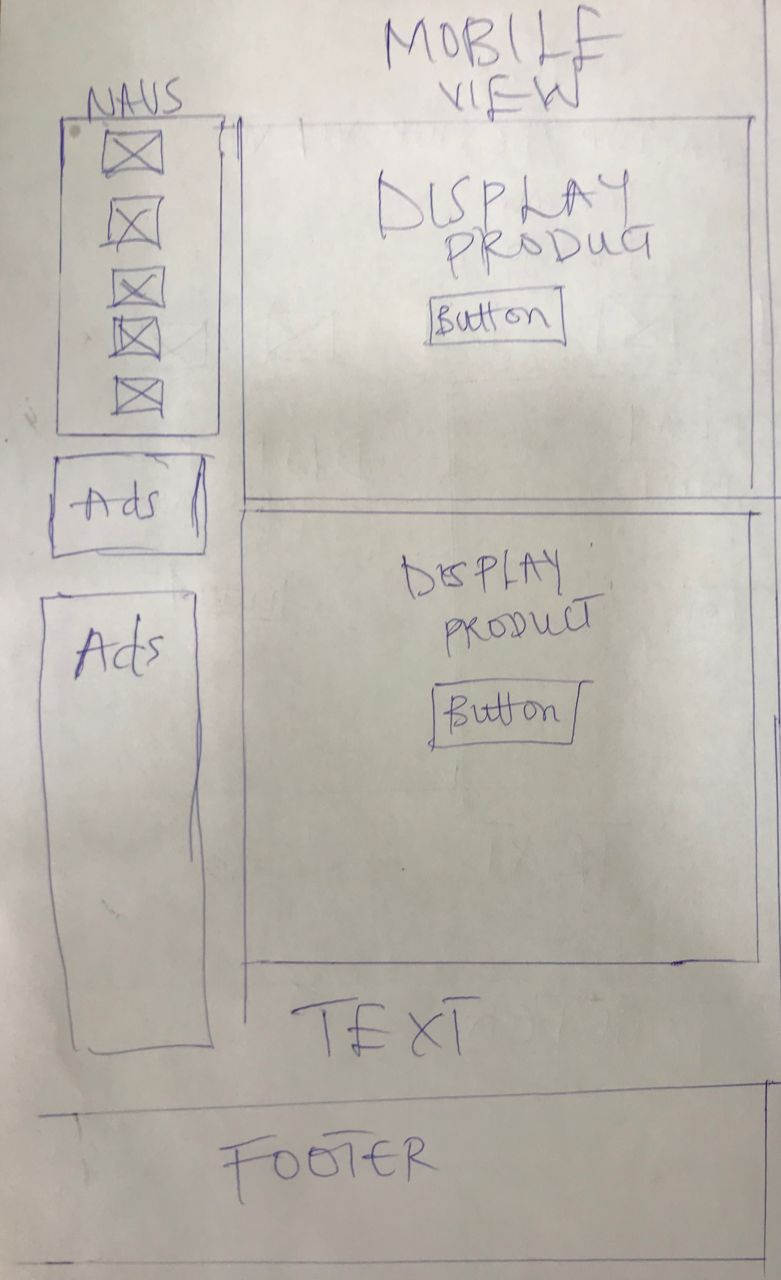 MOBILE
VIEW
NAVS
DISPLAY
PRODUCT
Button
Ads
DISPLAY
PRODUCT
Button
Ads
TEXT
FOOTER